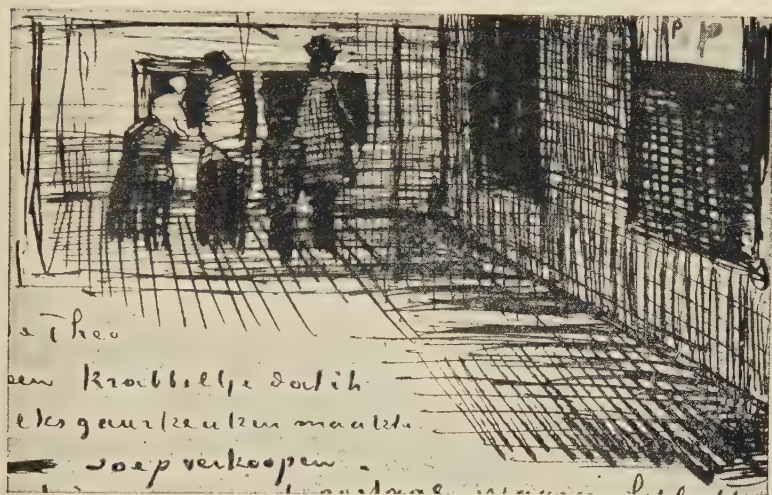 e Theo
een Krabbeltje dat ik
eksgaarkeuken maakte
soep verkoopen.